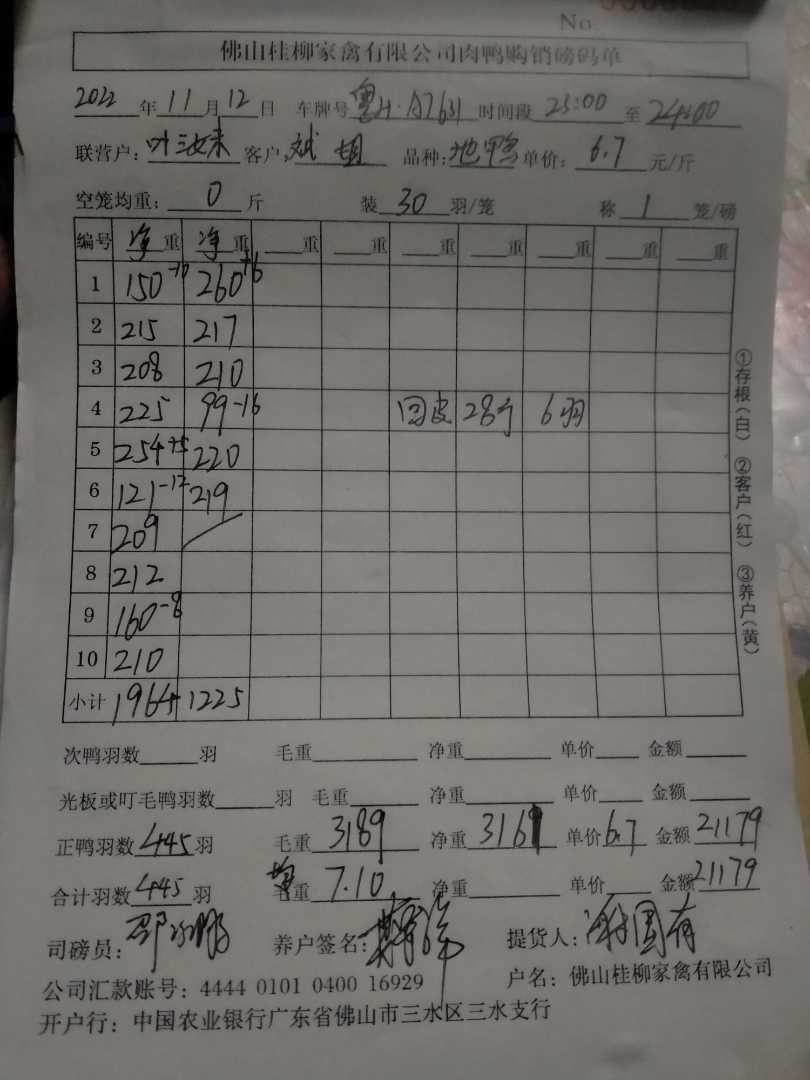 No.
佛山桂柳家禽有限公司肉鸭购销磅码单
2022 年 11 月 12 日 车牌号 粤H·A7631 时间段 23:00 至 24:00
联营户: 叶 客户: 斌姐 品种: 地鸭 单价: 6.7 元/斤
空笼均重: 0 斤 装 30 羽/笼 称 1 笼/磅
编号 净重 净重 重 重 重 重 重 重 重
1 150-10 260+6
2 215 217
3 208 210
4 225 99-16 回皮 28斤 6羽
5 254+5 220
6 121-12 219
7 209
8 212
9 160-8
10 210
小计 1964 1225
①存根(白) ②客户(红) ③养户(黄)
次鸭羽数 羽 毛重 净重 单价 金额
光板或叮毛鸭羽数 羽 毛重 净重 单价 金额
正鸭羽数 445 羽 毛重 3189 净重 3161 单价 6.7 金额 21179
合计羽数 445 羽 均重 7.10 净重 单价 金额 21179
司磅员: 养户签名: 提货人:
公司汇款账号: 4444 0101 0400 16929 户名: 佛山桂柳家禽有限公司
开户行: 中国农业银行广东省佛山市三水区三水支行